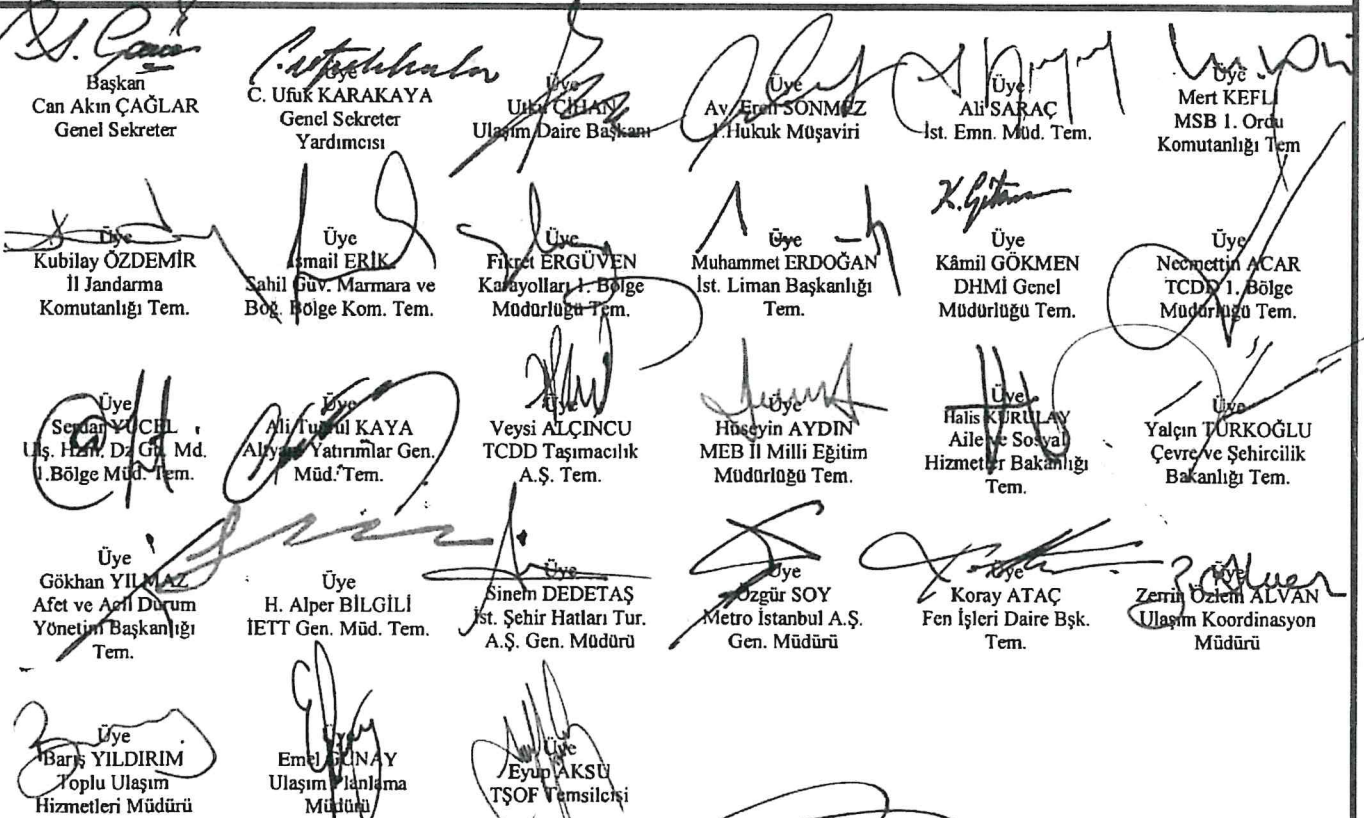 Başkan
Can Akın ÇAĞLAR
Genel Sekreter
Üye
C. Ufuk KARAKAYA
Genel Sekreter
Yardımcısı
Üye
Utku CİHAN
Ulaşım Daire Başkanı
Üye
Av. Eren SÖNMEZ
1.Hukuk Müşaviri
Üye
Ali SARAÇ
İst. Emn. Müd. Tem.
Üye
Mert KEFLİ
MSB 1. Ordu
Komutanlığı Tem
Üye
Kubilay ÖZDEMİR
İl Jandarma
Komutanlığı Tem.
Üye
İsmail ERİK
Sahil Güv. Marmara ve
Boğ. Bölge Kom. Tem.
Üye
Fikret ERGÜVEN
Karayolları 1. Bölge
Müdürlüğü Tem.
Üye
Muhammet ERDOĞAN
İst. Liman Başkanlığı
Tem.
Üye
Kâmil GÖKMEN
DHMİ Genel
Müdürlüğü Tem.
Üye
Necmettin ACAR
TCDD 1. Bölge
Müdürlüğü Tem.
Üye
Serdar YÜCEL
Ulş. Hzm. Dz Gn. Md.
1.Bölge Müd. Tem.
Üye
Ali Tuğrul KAYA
Altyapı Yatırımlar Gen.
Müd. Tem.
Üye
Veysi ALÇINCU
TCDD Taşımacılık
A.Ş. Tem.
Üye
Hüseyin AYDIN
MEB İl Milli Eğitim
Müdürlüğü Tem.
Üye
Halis KURULAY
Aile ve Sosyal
Hizmetler Bakanlığı
Tem.
Üye
Yalçın TÜRKOĞLU
Çevre ve Şehircilik
Bakanlığı Tem.
Üye
Gökhan YILMAZ
Afet ve Acil Durum
Yönetim Başkanlığı
Tem.
Üye
H. Alper BİLGİLİ
İETT Gen. Müd. Tem.
Üye
Sinem DEDETAŞ
İst. Şehir Hatları Tur.
A.Ş. Gen. Müdürü
Üye
Özgür SOY
Metro İstanbul A.Ş.
Gen. Müdürü
Üye
Koray ATAÇ
Fen İşleri Daire Bşk.
Tem.
Üye
Zerrin Özlem ALVAN
Ulaşım Koordinasyon
Müdürü
Üye
Barış YILDIRIM
Toplu Ulaşım
Hizmetleri Müdürü
Üye
Emel GÜNAY
Ulaşım Planlama
Müdürü
Üye
Eyup AKSU
TŞOF Temsilcisi